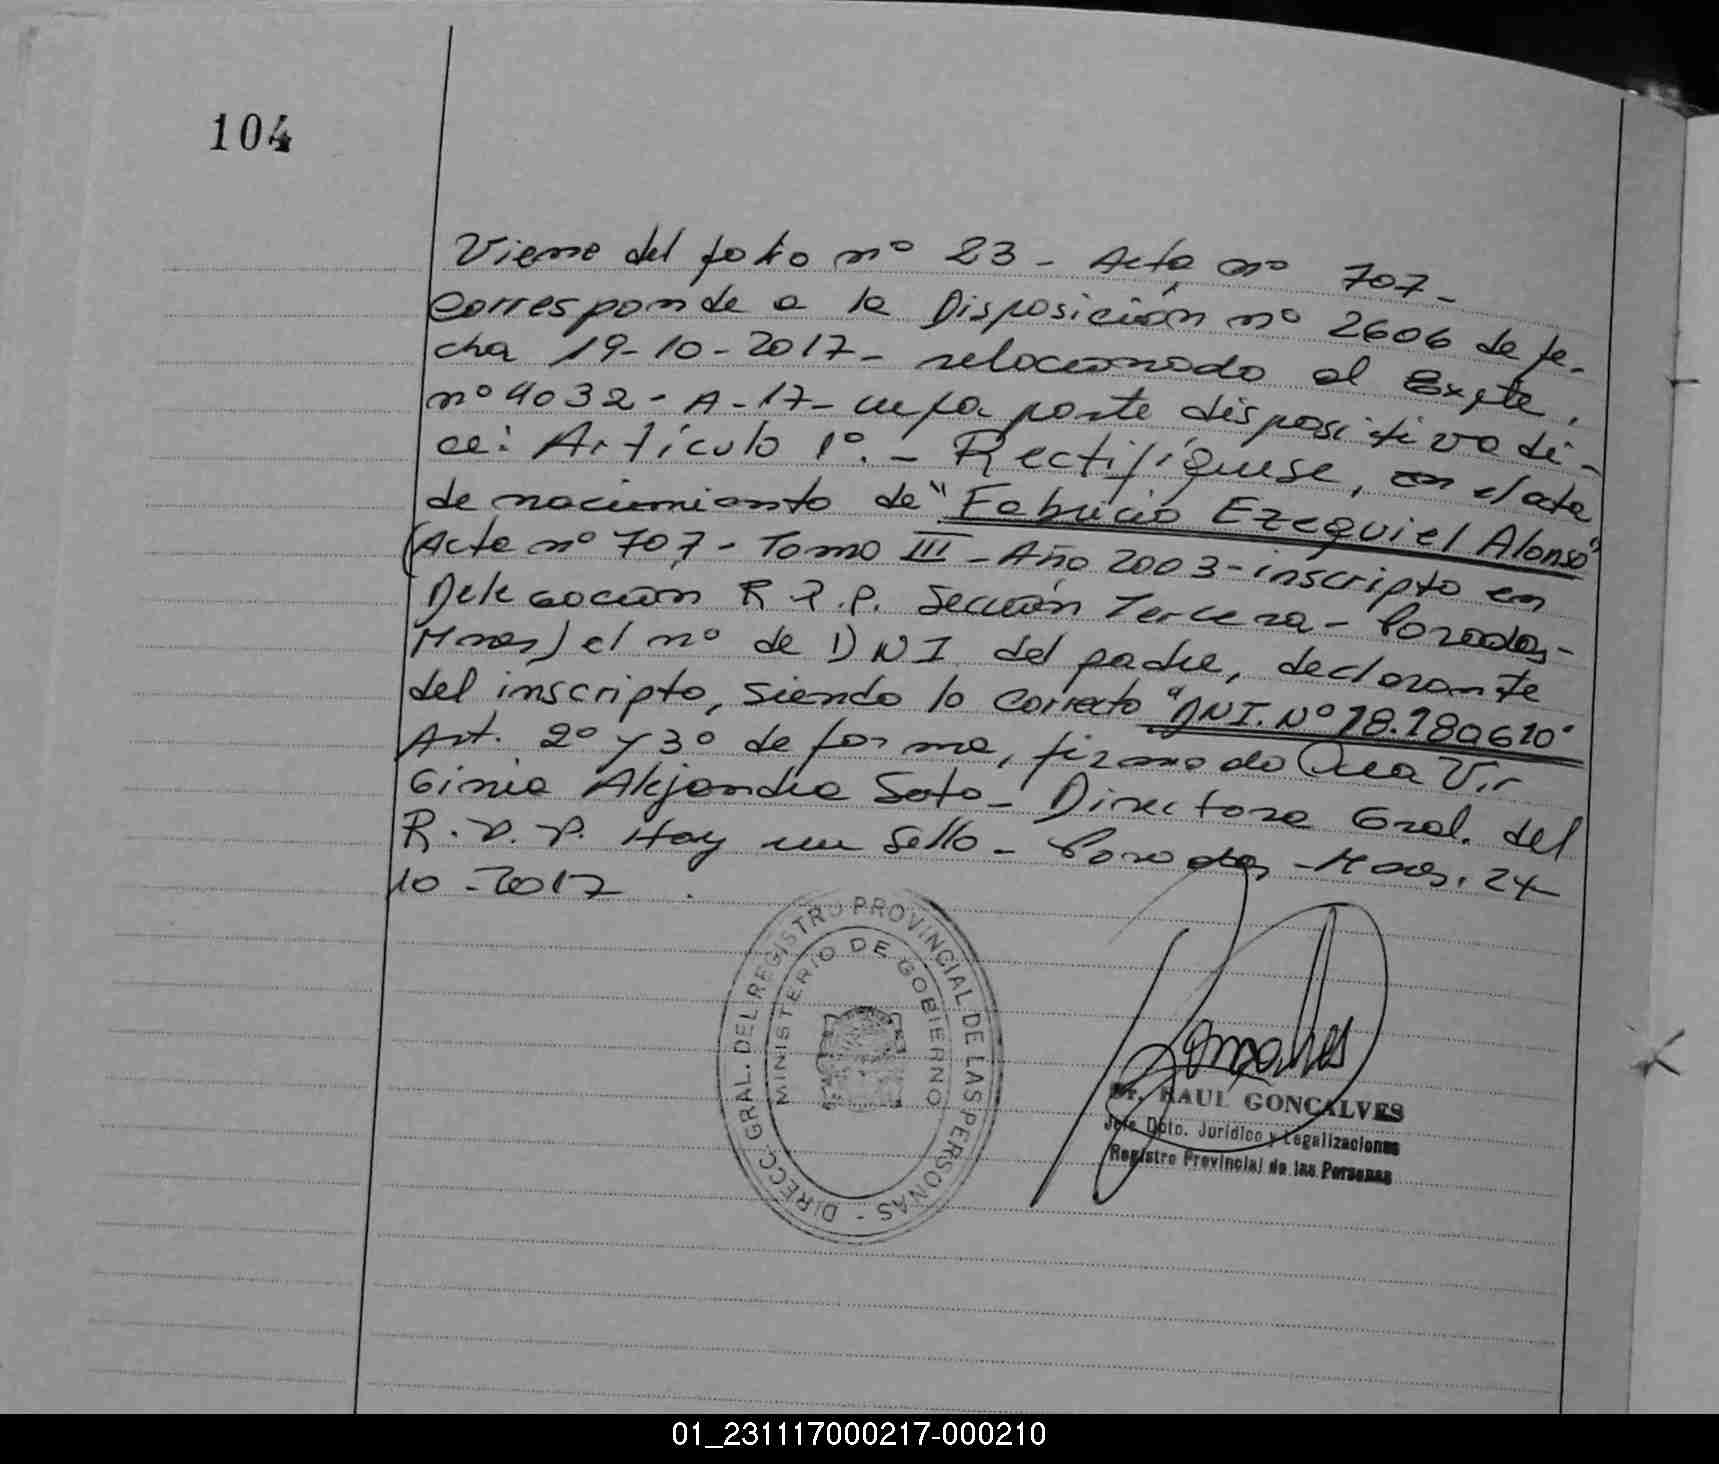 104
Viene del folio nº 23 - Acta nº 707 -
Corresponde a la Disposición nº 2606 de fe-
cha 19-10-2017 - relacionado al Expte.
nº 4032 - A - 17 - cuya parte dispositiva di-
ce: Artículo 1º. - Rectifíquese, en el acta
de nacimiento de "Fabricio Ezequiel Alonso"
(Acta nº 707 - Tomo III - Año 2003 - inscripto en
Delegación R.P.P. Sección Tercera - Posadas -
Mnes) el nº de DNI del padre, declarante
del inscripto, siendo lo correcto "DNI. Nº 18.180610"
Art. 2º y 3º de forma, firmado Dra Vir
ginia Alejandra Soto - Directora Gral. del
R.P.P. Hay un Sello - Posadas - Mnes, 24-
10-2017
DIRECC. GRAL. DEL REGISTRO PROVINCIAL DE LAS PERSONAS -
MINISTERIO DE GOBIERNO
Dr. RAUL GONCALVES
Jefe Dpto. Jurídico y Legalizaciones
Registro Provincial de las Personas
01_231117000217-000210